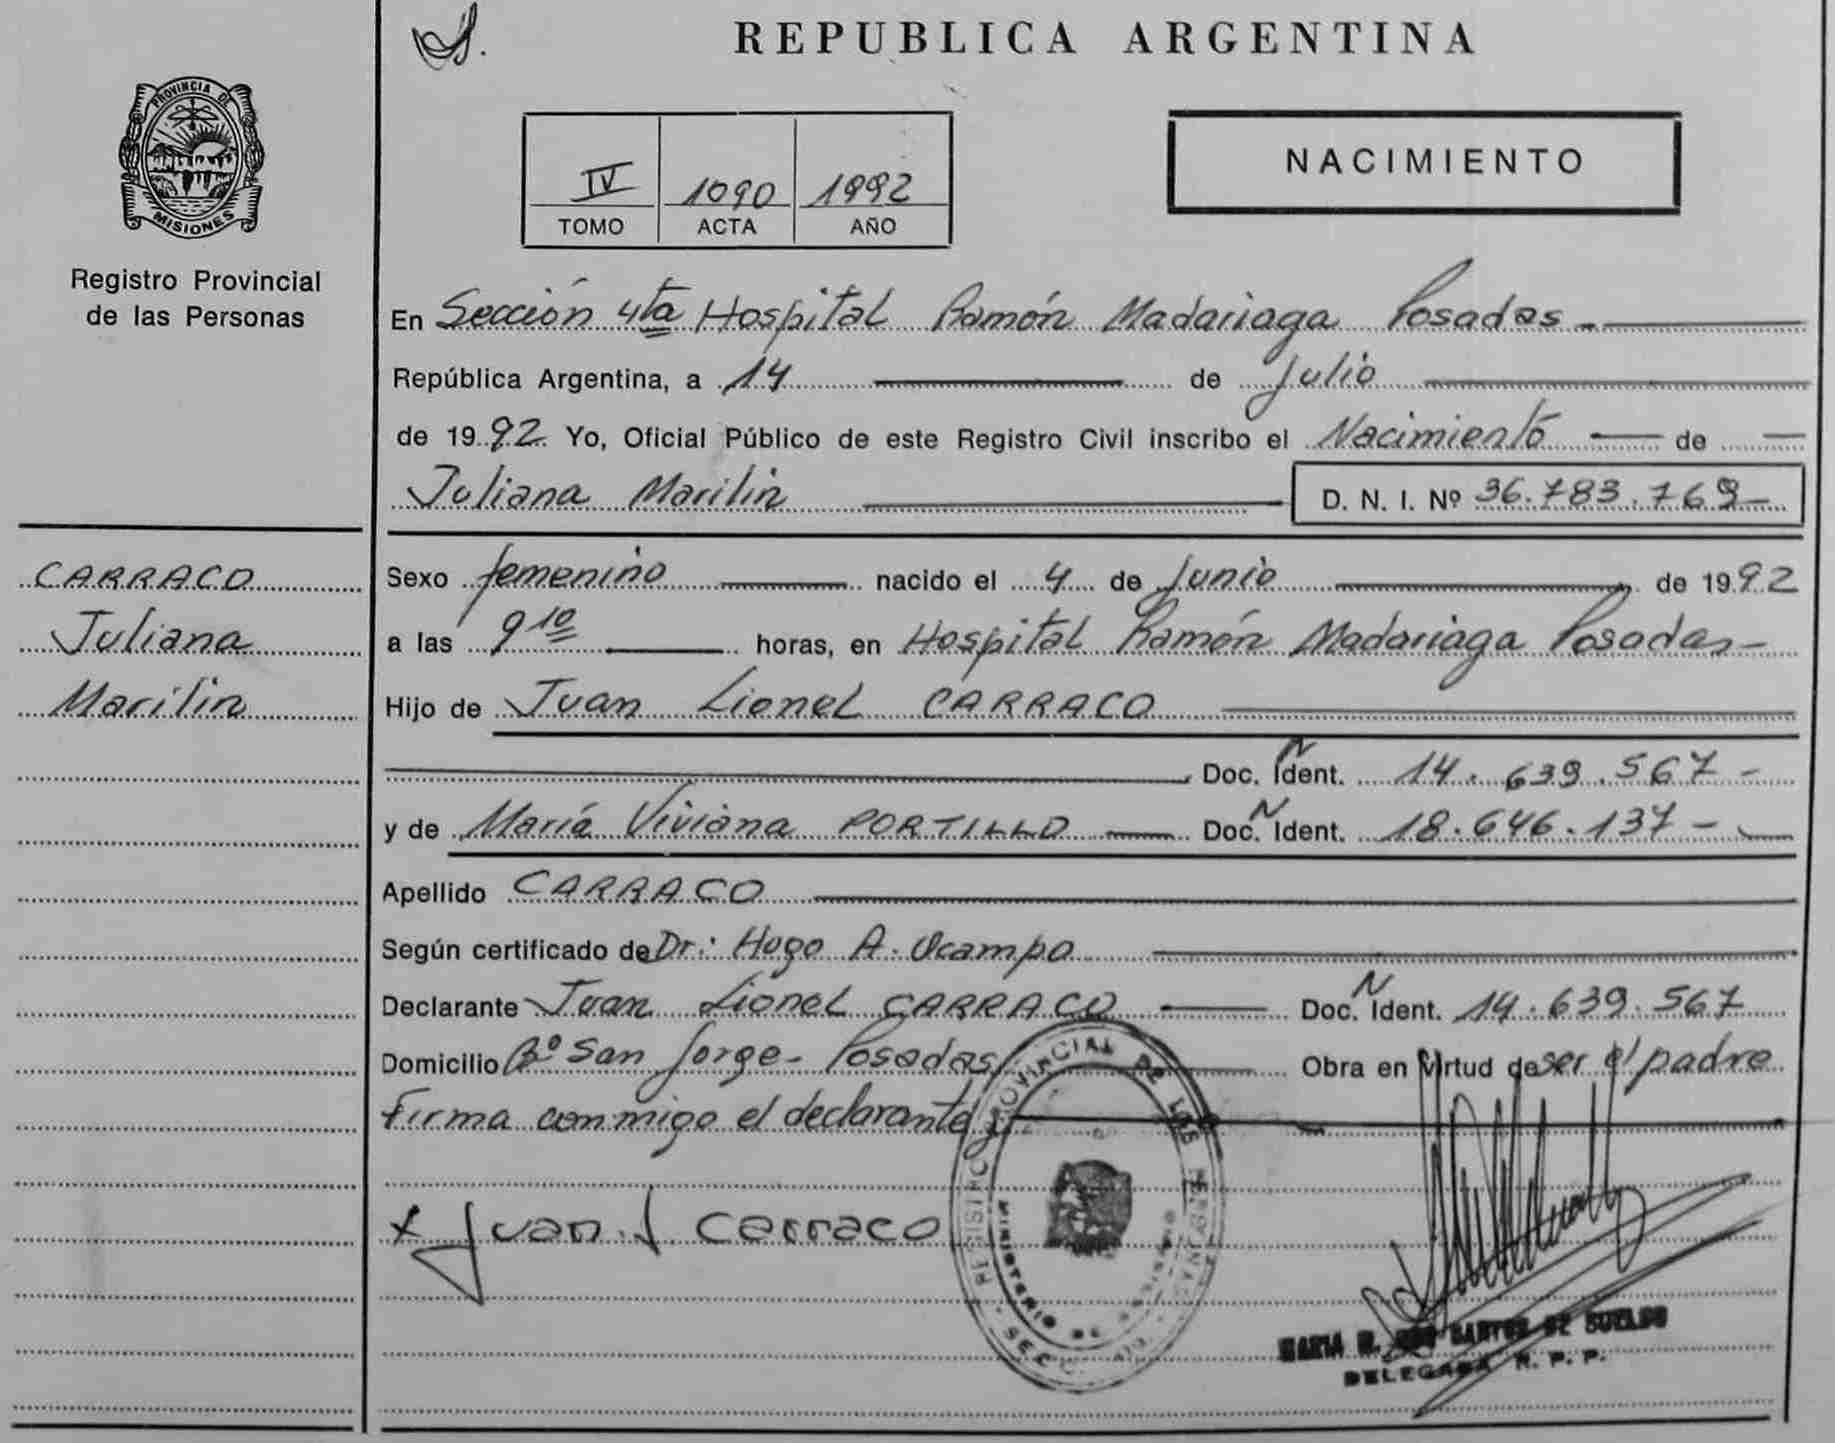 REPUBLICA ARGENTINA
PROVINCIA DE
MISIONES
Registro Provincial
de las Personas
IV 1090 1992
TOMO ACTA AÑO
NACIMIENTO
En Sección 4ta Hospital Ramón Madariaga Posadas
República Argentina, a 14 de Julio
de 1992 Yo, Oficial Público de este Registro Civil inscribo el Nacimiento de
Juliana Marilin D. N. I. Nº 36.783.769
CARRACO
Juliana
Marilin
Sexo femenino nacido el 4 de Junio de 1992
a las 9 10 horas, en Hospital Ramón Madariaga Posadas
Hijo de Juan Lionel CARRACO
Doc. N Ident. 14.639.567
y de María Viviana PORTILLO Doc. N Ident. 18.646.137
Apellido CARRACO
Según certificado de Dr: Hugo A. Ocampo
Declarante Juan Lionel CARRACO Doc. N Ident. 14.639.567
Domicilio Bº San Jorge - Posadas Obra en virtud de ser el padre
Firma conmigo el declarante
x Juan. L. Carraco
REGISTRO PROVINCIAL DE LAS PERSONAS
MINISTERIO DE
MARIA SANTOS DE SUELDO
DELEGADA R. P. P.